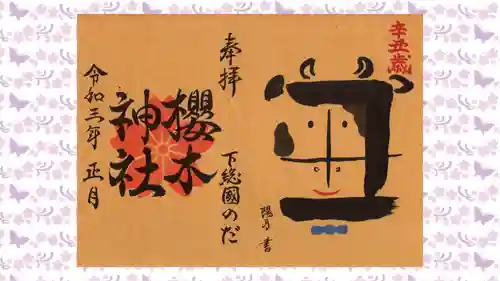 辛丑歳
奉拝
下総國のだ
櫻木
神社
令和三年 正月